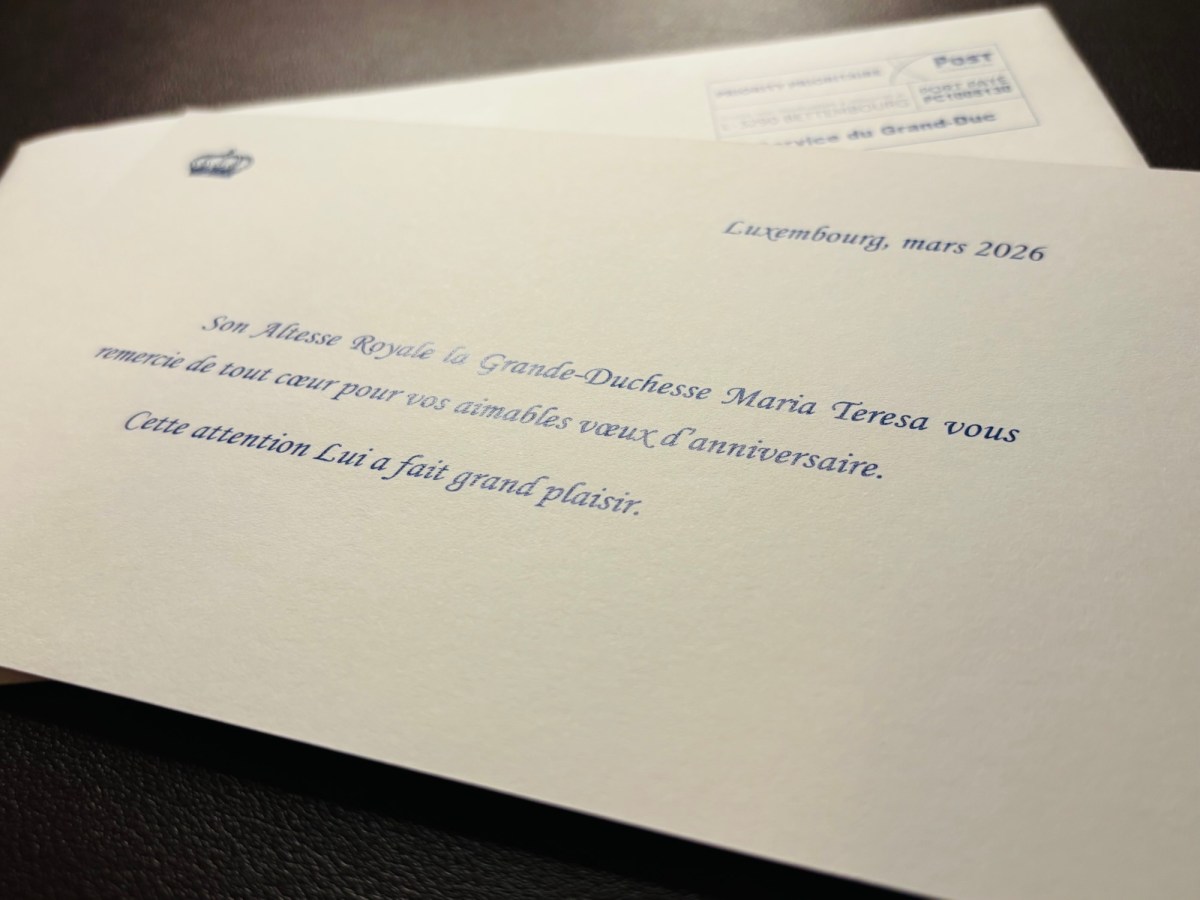 Post
PRIORITY PRIORITAIRE
PORT PAYÉ
BETTEMBOURG
Service du Grand-Duc
Luxembourg, mars 2026
Son Altesse Royale la Grande-Duchesse Maria Teresa vous
remercie de tout cœur pour vos aimables vœux d'anniversaire.
Cette attention Lui a fait grand plaisir.